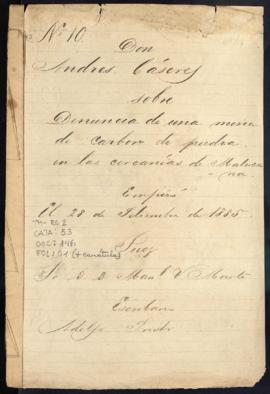 Nº 10.
Don
Andres Cáseres
sobre
Denuncia de una mina
de carbon de piedra
en las cercanías de Matuca
na
Empieza
El 28 de Setiembre de 1885
Juez
S. D. D. Manl V. Morote
Escribano
Adolfo
CATA: 53
DOC: 146
FOL: 01 (+ carátula)